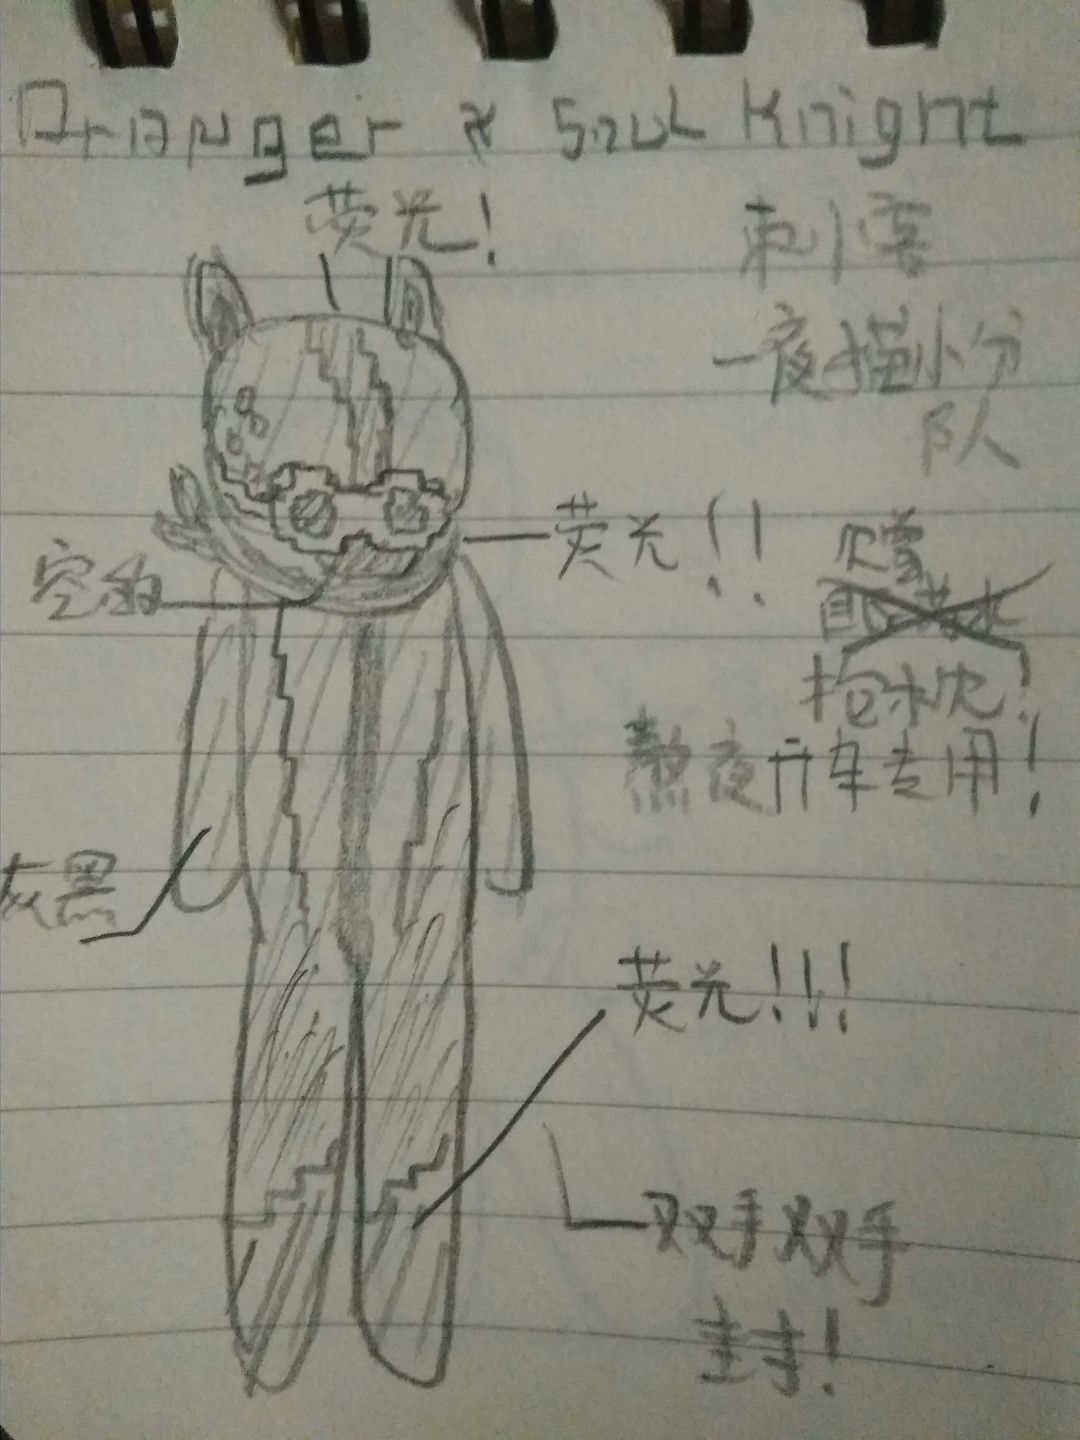 Dranger x Soul Knight
荧光！
刺小客
一夜猫小分
队
荧光！！
赠
抱枕！
熬夜开车专用！
灰黑
荧光！！！
双手双手